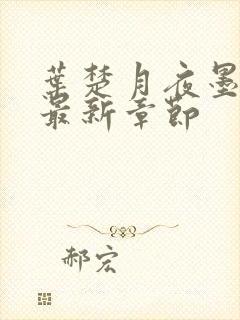 葉楚月夜墨
最新章節
郝宏